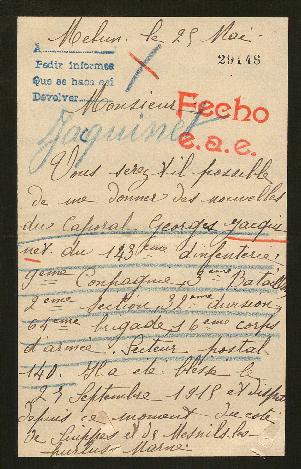 Melun, le 25 Mai
29148
A
Pedir informes
Que se hace así
Devolver
Monsieur
Fecho
e.a.e.
Jaquinet
Vous serez t'il possible
de me donner des nouvelles
du Caporal Georges Jacqui
net du 123ème d'infenterie,
9ème Compagnie 3ème Batail
2ème Section 39ème division
64ème brigade 16ème corps
d'armée. Secteur postal
140. Il a été blessé le
25 Septembre 1915 et disparu
depuis ce moment du coté
de Suippes et de Mesnils-les
hurlus-Marne